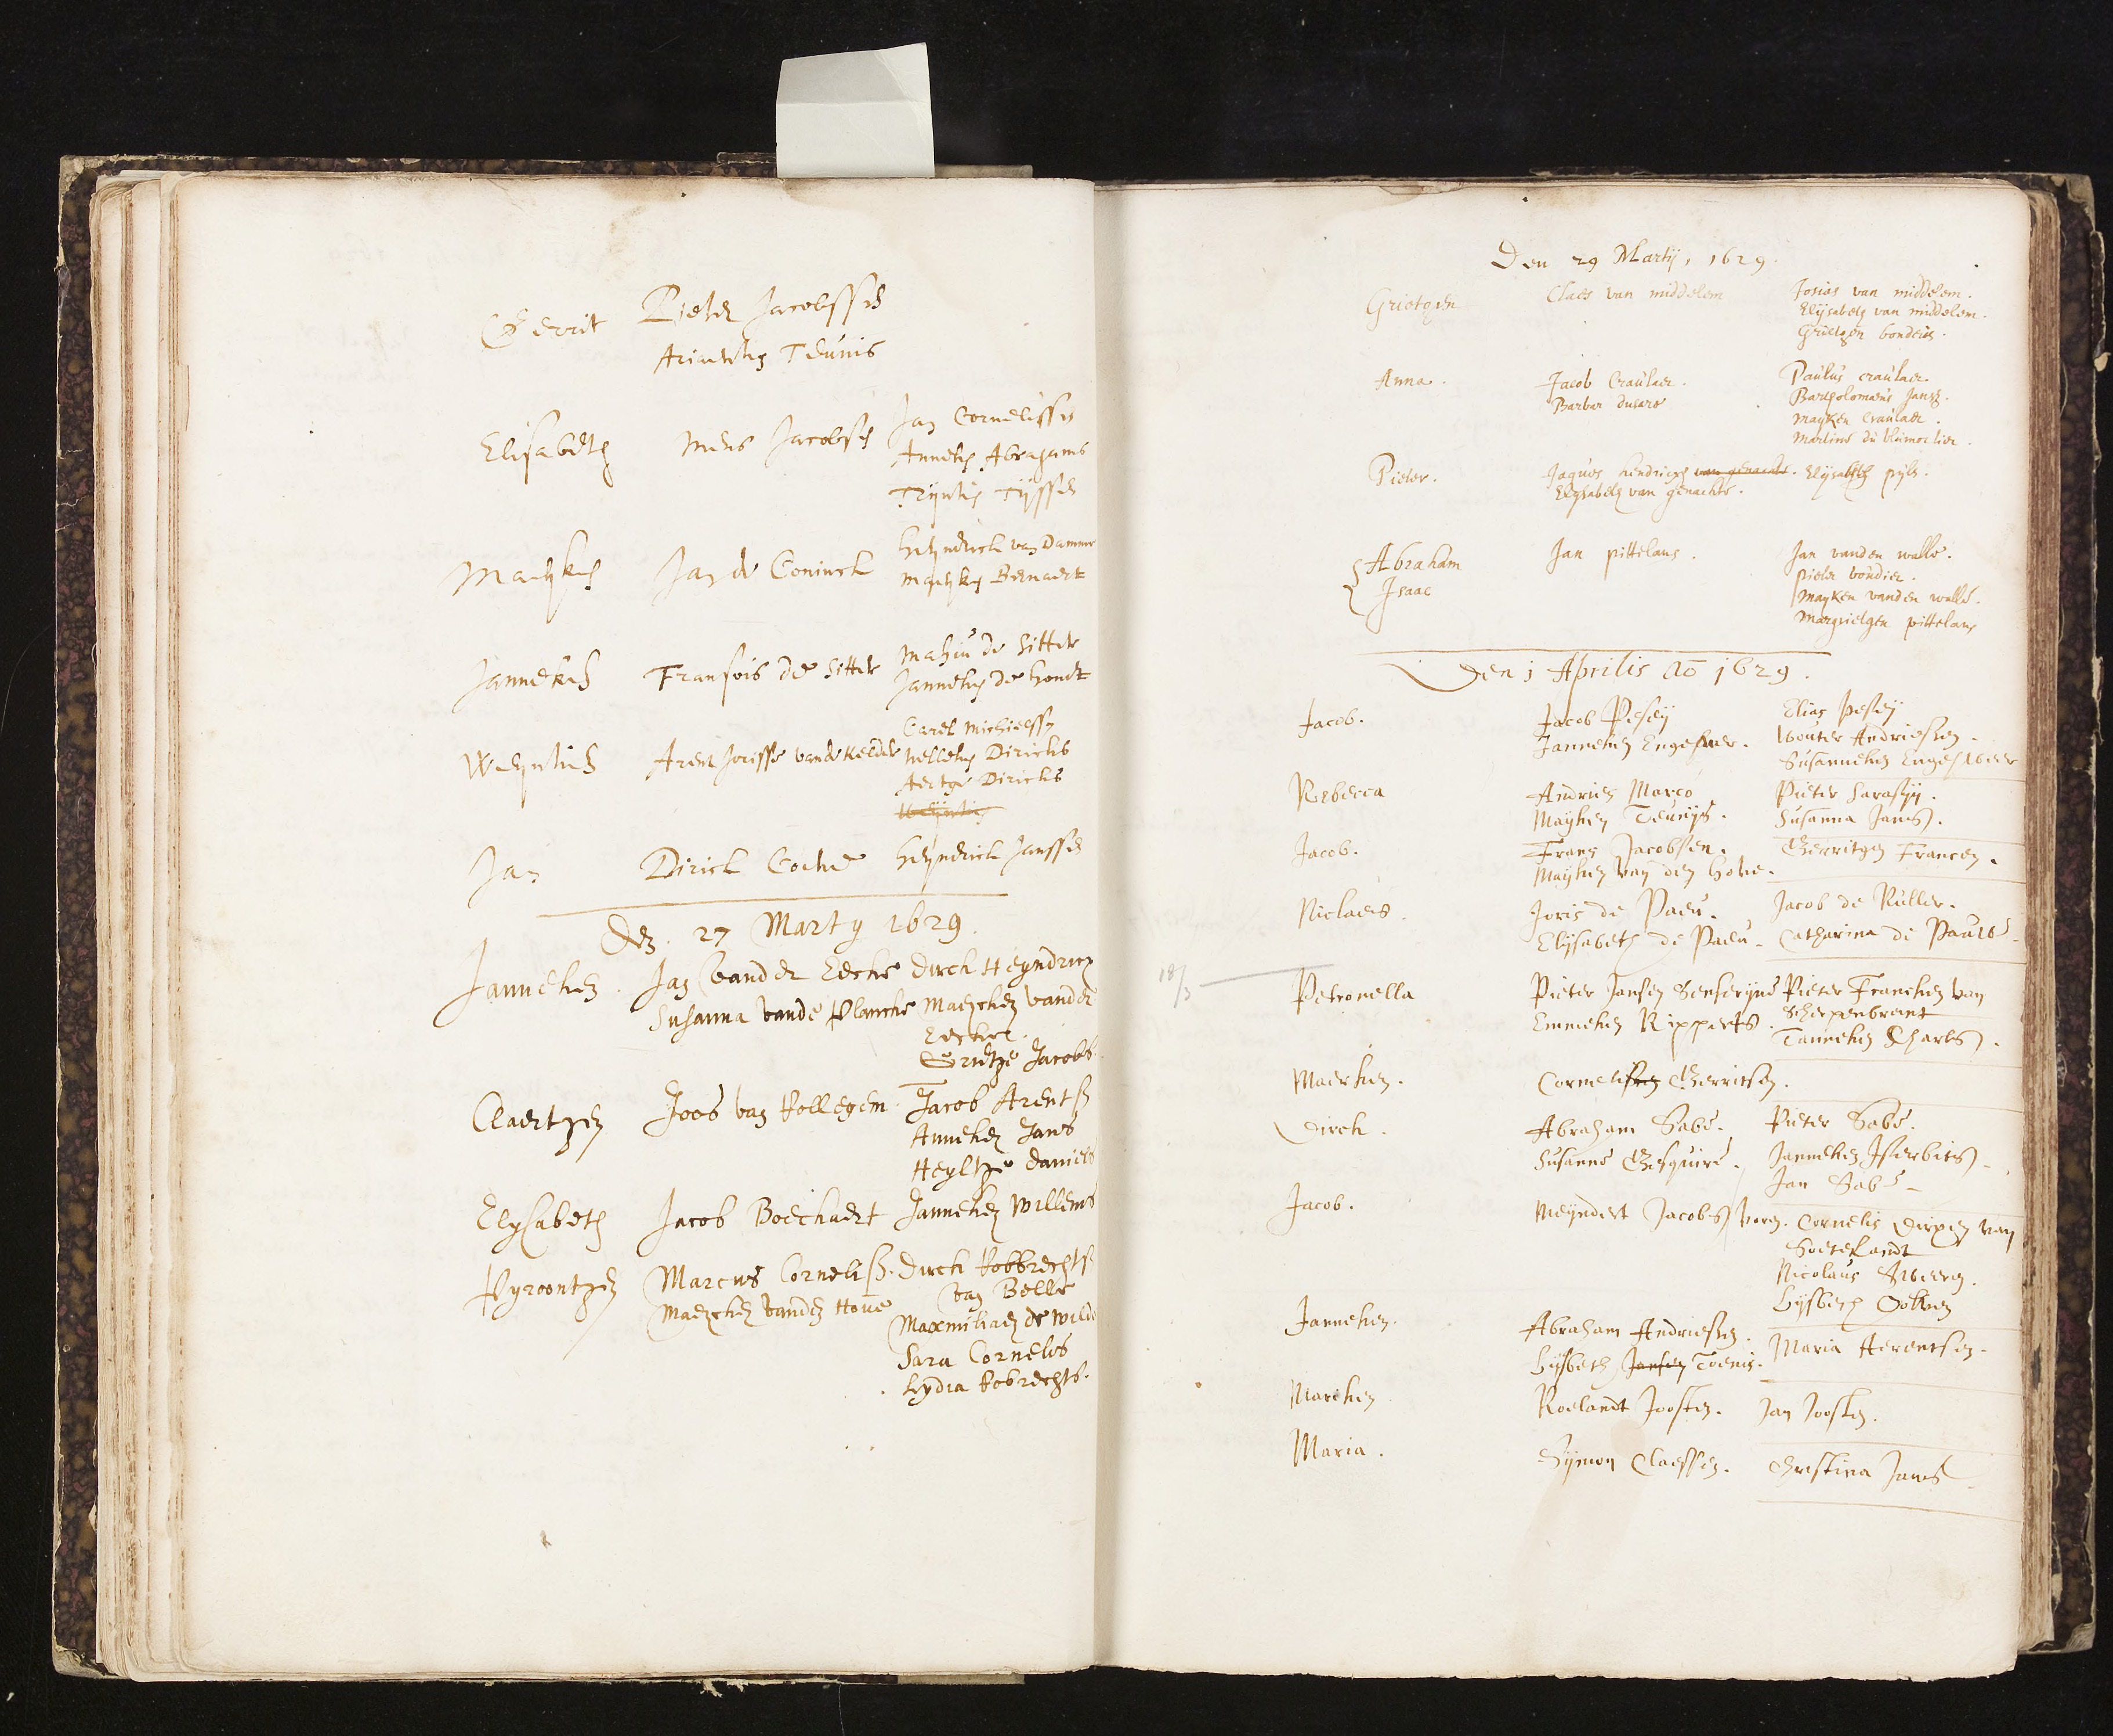 Gerrit Pieter Jacobssen
Ariaentien Teunis
Elisabeth Meus Jacobsen Jan Cornelissen
Annetien Abrahams
Trijntien Tijssen
Mayken Jan de Coninck Heyndrick van Damme
Mayken Bernaert
Janneken Fransois de Sitter Mahiu de Sitter
Janneken de Hondt
Weyntien Arent Jorisse vande Kelder Carel Michielssen
Nelleken Diricks
Aertge Diricks
Jan Dirick Heyndrick Janssen
Den 27 Marty 1629.
Janneken. Jan vander Eecke Dirck Heyndricx
Susanna vande Plancke Maeycken vander
Eecke
Grietge Jacobs.
Claertgen Joos van Rollegem. Jacob Arents
Anneken Jans
Heyltge Daniels
Elysabeth Jacob Boeckaert Janneken Willems
Pyroontgen Marcus Corneliss. Dirck Robbrechts
Maeycken vanden Hove van Belle
Maxmiliaen de Wilde
Sara Cornelis
Lydia Robrechts.
Den 29 Martij, 1629.
Grietgen Claes van middelem Josias van middelem.
Elijsabeth van middelem.
Grietgen
Anna. Jacob Craulaer. Paulus craulaer.
Barbar dusare Bartholomeus Jansz.
mayken Craulaer.
Martine du
Pieter. Jaques hendricx van genachte. Elijsabeth pijls.
Elysabeth van genachte.
Abraham Jan pittelans. Jan vanden walle.
Isaac pieter boudier.
Mayken vanden walle.
Margrietgen pittelans
Den 1 Aprilis Ao 1629.
Jacob. Jacob Pesey Elias Pesey
Janneken Wouter Andriessen.
Susanneken
Rebecca Andries Marco Pieter Sarasijn.
Mayken Teunijs. Susanna Jans.
Jacob. Frans Jacobsen. Gerritgen Francen.
Mayken van den Hove.
Niclaes. Joris de Paeu. Jacob de Ruller.
Elijsabeth de Paeu. Catharina de Pauw.
18/3
Petronella Pieter Jansen Pieter Francken van
Emmeken Ripperts. Scherpenbrant
Tanneken Charles.
Maerken. Cornelis Gerritsen.
Dirck. Abraham Sabe. Pieter Sabe.
Susanne Gesquire. Janneken
Jan Sabe
Jacob. Meyndert Jacobs Cornelis Dirxen van
Soeterlandt
Nicolaus
Lijsbeth
Janneken. Abraham Andriessen. Maria Herentsen.
Lijsbeth Jansen Toenis.
Marcken Roelandt Joosten. Jan Joosten.
Maria. Sijmon Claessen. Christina Jans